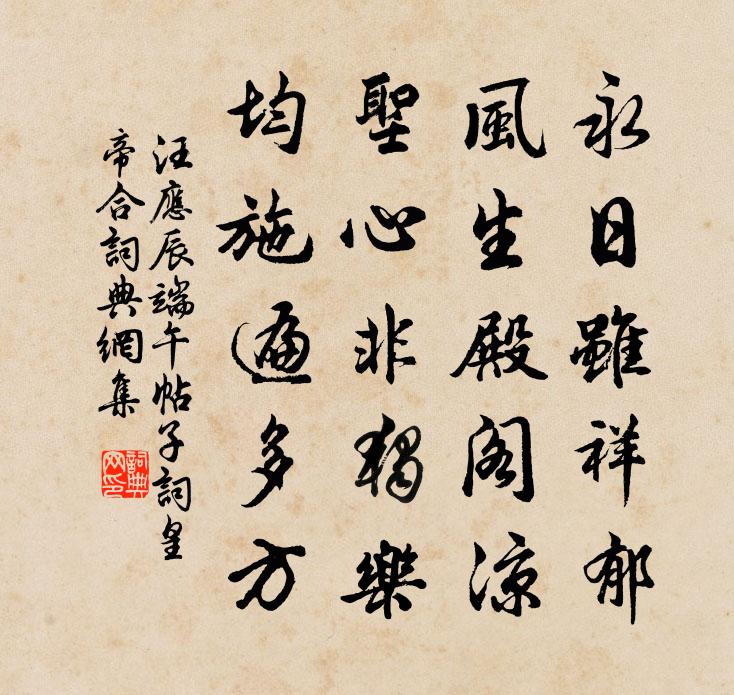 永日雖祥郁
風生殿阁涼
聖心非獨樂
均施遍多方
汪應辰端午帖子詞皇
帝合詞典網集
詞典
网印